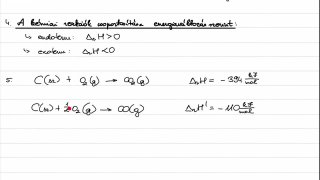 4. A kémiai reakciók csoportosítása energiaváltozás szerint:
↳ endoterm: ΔᵣH > 0
↳ exoterm: ΔᵣH < 0
5. C(sz) + O₂(g) → CO₂(g) ΔᵣH = -394 kJ/mol
C(sz) + ½O₂(g) → CO(g) ΔᵣH' = -110 kJ/mol